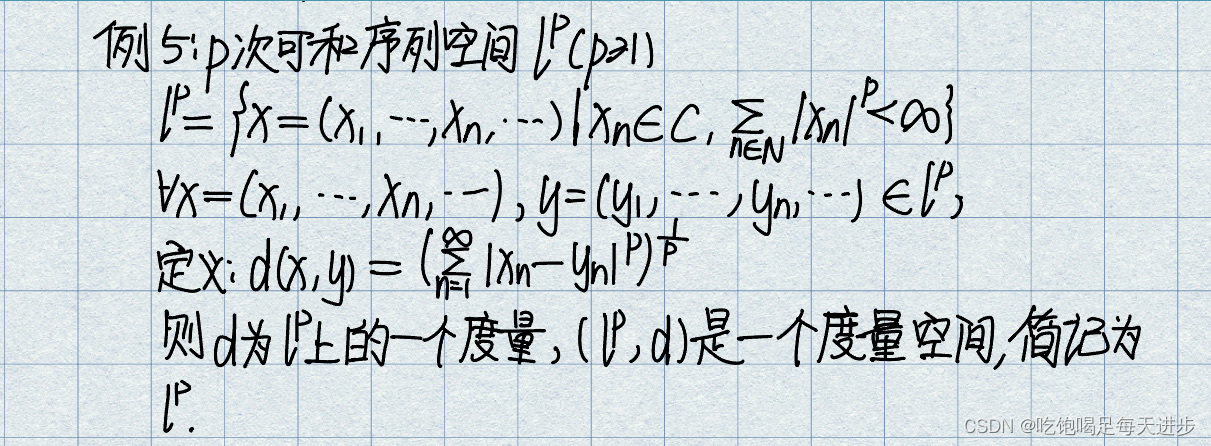 例5:p次可和序列空间 l^p(p≥1)
l^p={x=(x₁,…,xₙ,…)|xₙ∈C, ∑_{n∈N}|xₙ|^p<∞}
∀x=(x₁,…,xₙ,…),y=(y₁,…,yₙ,…)∈l^p,
定义:d(x,y)=(∑_{n=1}^{∞}|xₙ-yₙ|^p)^{1/p}
则d为l^p上的一个度量,(l^p,d)是一个度量空间,简记为
l^p.
CSDN @吃饱喝足每天进步